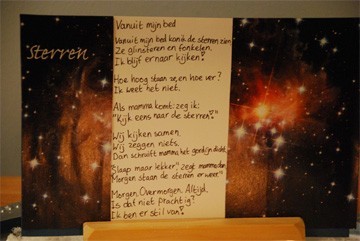 Sterren
Vanuit mijn bed
Vanuit mijn bed kan ik de sterren zien
Ze glinsteren en fonkelen.
Ik blijf ernaar kijken!
Hoe hoog staan ze, en hoe ver?
Ik weet het niet.
Als mamma komt zeg ik:
"Kijk eens naar de sterren!"
Wij kijken samen
Wij zeggen niets.
Dan schuift mamma het gordijn dicht.
Slaap maar lekker!! zegt mamma dan
Morgen staan de sterren er weer!"
Morgen. Overmorgen. Altijd.
Is dat niet prachtig?
Ik ben er stil van!